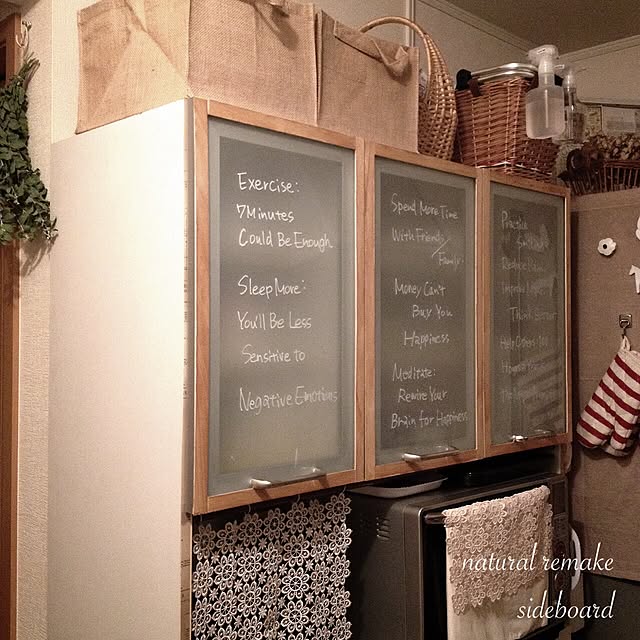 Exercise:
7 Minutes
Could Be Enough
Sleep More:
You'll Be Less
Sensitive to
Negative Emotions
Spend More Time
With Friends/
Family:
Money Can't
Buy You
Happiness
Meditate:
Rewire Your
Brain for Happiness
Practice
Smiling
Help Others 100
natural remake
sideboard